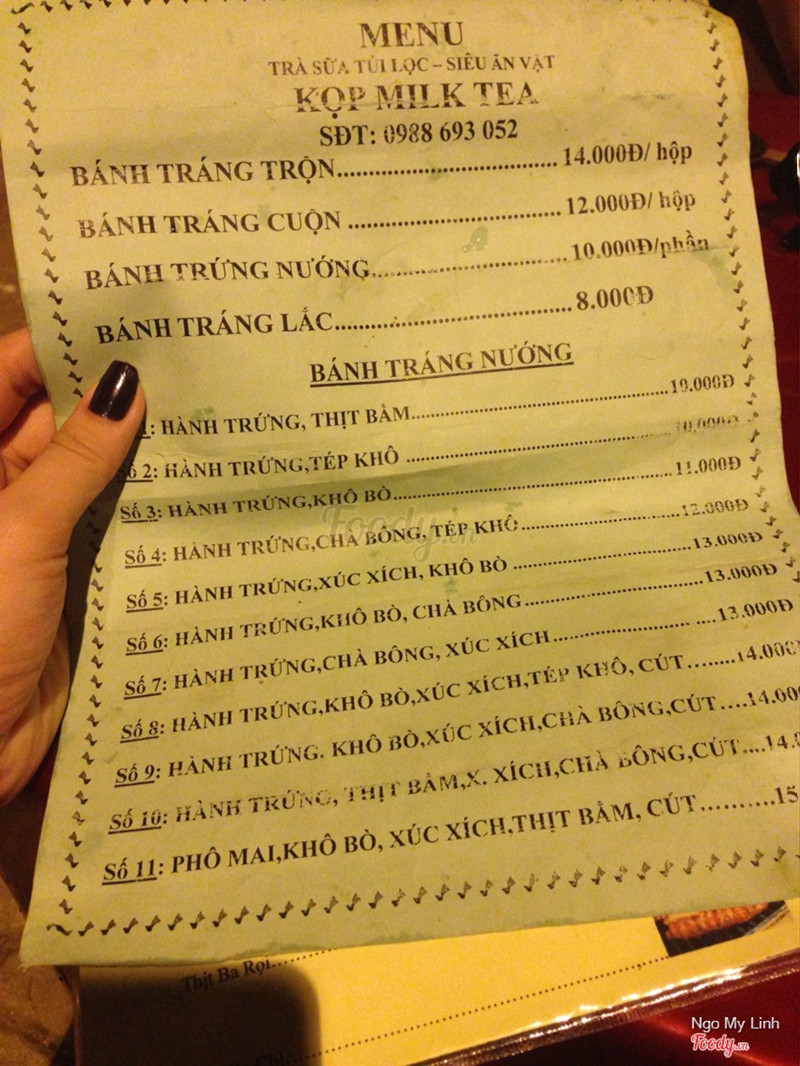 MENU
TRÀ SỮA TÚI LỌC – SIÊU ĂN VẶT
KỌP MILK TEA
SĐT: 0988 693 052
BÁNH TRÁNG TRỘN.................................. 14.000Đ/ hộp
BÁNH TRÁNG CUỘN ................................. 12.000Đ/ hộp
BÁNH TRỨNG NƯỚNG.............................. 10.000Đ/phần
BÁNH TRÁNG LẮC..................................... 8.000Đ
BÁNH TRÁNG NƯỚNG
1: HÀNH TRỨNG, THỊT BẰM.......................................10.000Đ
Số 2: HÀNH TRỨNG,TÉP KHÔ ........................................10.000Đ
Số 3: HÀNH TRỨNG,KHÔ BÒ..........................................11.000Đ
Số 4: HÀNH TRỨNG,CHÀ BÔNG, TÉP KHÔ.........................12.000Đ
Số 5: HÀNH TRỨNG,XÚC XÍCH, KHÔ BÒ ..........................13.000Đ
Số 6: HÀNH TRỨNG,KHÔ BÒ, CHÀ BÔNG..........................13.000Đ
Số 7: HÀNH TRỨNG,CHÀ BÔNG, XÚC XÍCH.................... ....13.000Đ
Số 8: HÀNH TRỨNG,KHÔ BÒ,XÚC XÍCH,TÉP KHÔ, CÚT........14.000
Số 9: HÀNH TRỨNG. KHÔ BÒ,XÚC XÍCH,CHÀ BÔNG,CÚT....14.000
Số 10: HÀNH TRỨNG, THỊT BẰM,X. XÍCH,CHÀ BÔNG,CÚT....14.0
Số 11: PHÔ MAI,KHÔ BÒ, XÚC XÍCH,THỊT BẰM, CÚT..........15
Thịt Ba Rọi.....
Foody.vn
Ngo My Linh
Foody.vn